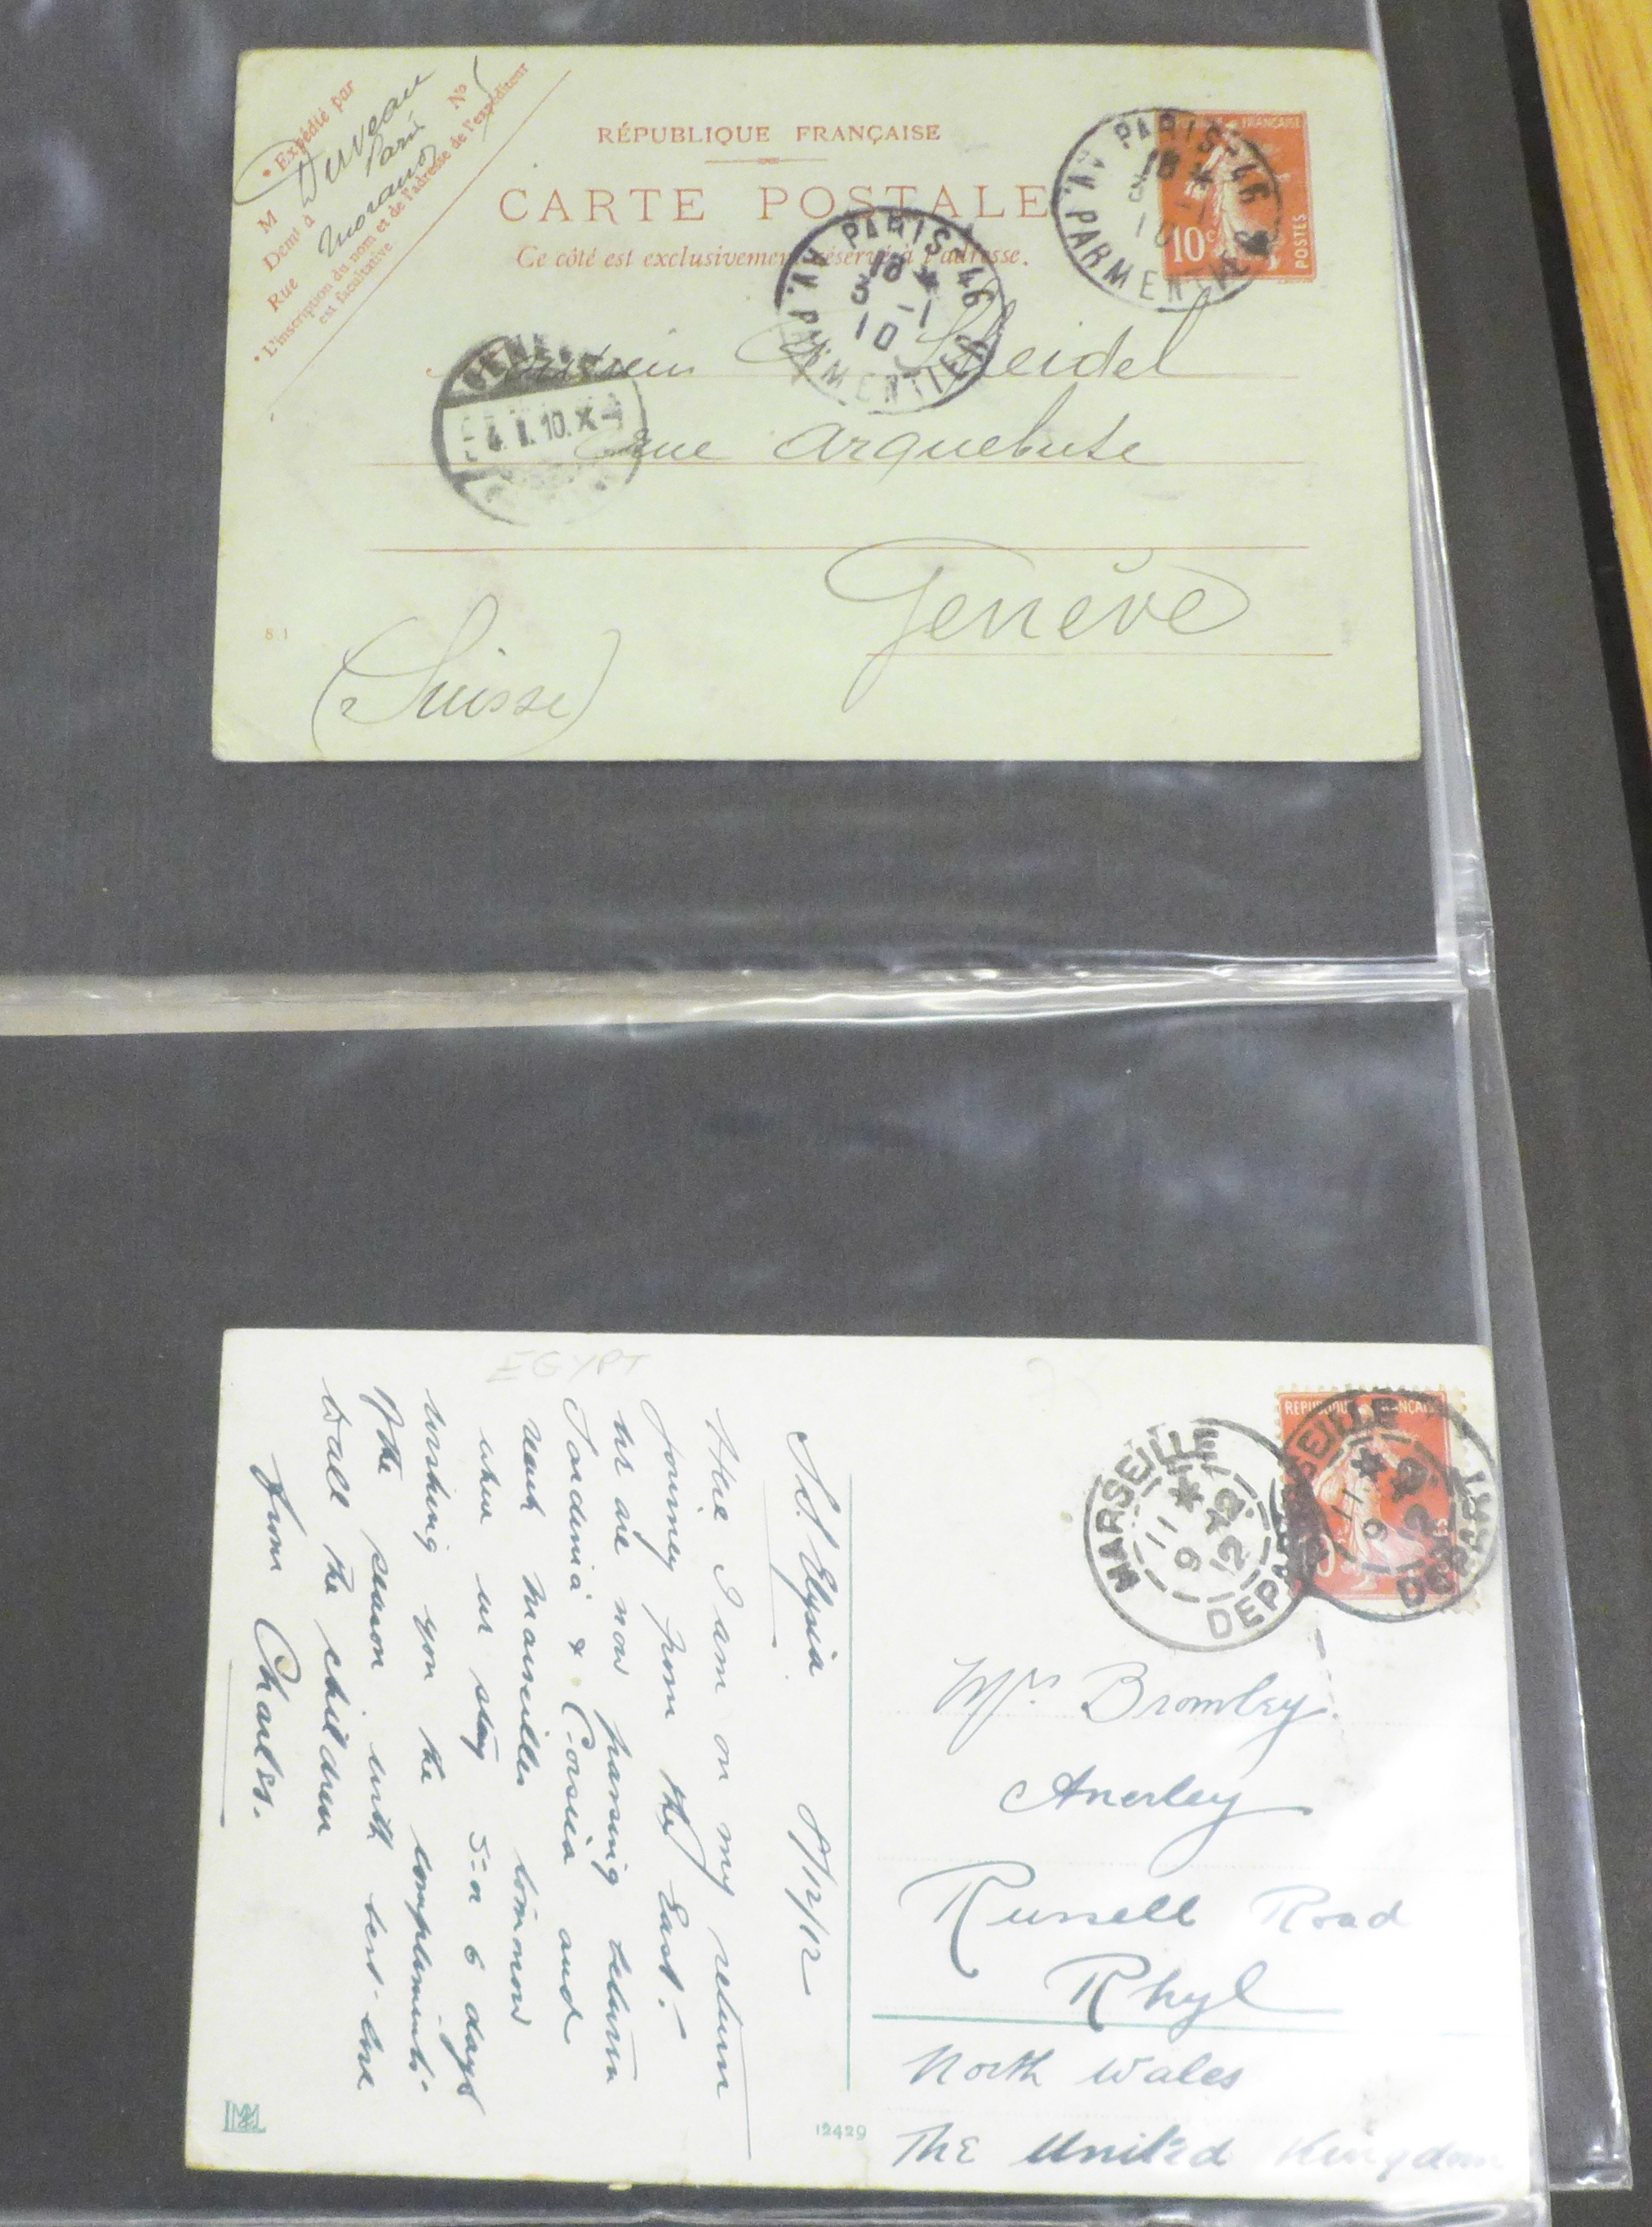 • Expédié par
M Derveau
Demt à Paris
Rue Morand Nº 5
• L'inscription du nom et de l'adresse de l'expéditeur
est facultative.
RÉPUBLIQUE FRANÇAISE
CARTE POSTALE
Ce côté est exclusivement réservé à l'adresse.
FRANÇAISE
10c
POSTES
PARIS-46
18
3 -1
10
AV. PARMENTIER
PARIS-46
18
3 -1
10
AV. PARMENTIER
4. I. 10. X
Scheidel
rue Arquebuse
Genève
(Suisse)
81
EGYPT
S.S. Elysia 8/12/12
Here I am on my return
journey from the East.-
We are now passing between
Sardinia & Corsica and
reach Marseilles tomorrow
when we stay 5 or 6 days
Wishing you the compliments
of the season with best love
to all the children
From Charles.
12429
REPUBLIQUE FRANÇAISE
MARSEILLE
11 *
9 12
12
DEPART
MARSEILLE
11 *
9 12
12
DEPART
Mrs Bromley.
Anerley
Russell Road
Rhyl
North Wales
The United Kingdom